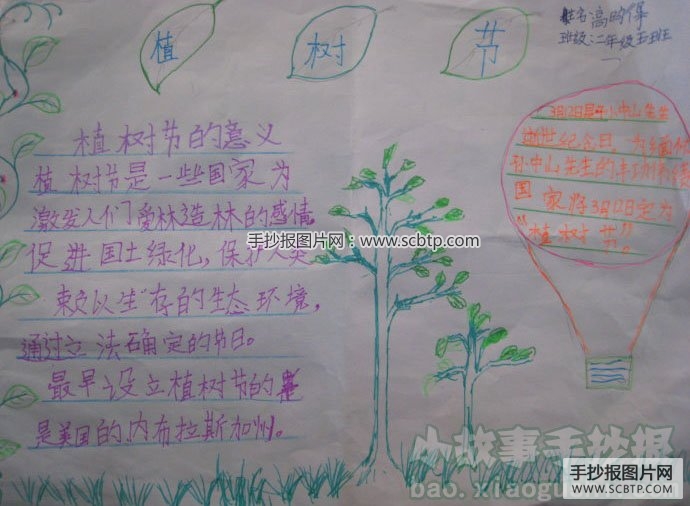 植 树 节
姓名:高
班级:二年级五班
植树节的意义
植树节是一些国家为
激发人们爱林造林的感情
促进国土绿化,保护人类
赖以生存的生态环境,
通过立法确定的节日。
最早设立植树节的
是美国的内布拉斯加州。
3月12日是孙中山先生
逝世纪念日,为缅怀
孙中山先生的丰功伟绩
国家将3月12日定为
“植树节”。
手抄报图片网:www.scbtp.com
小故事手抄报
bao.xiaogu
手抄报图片网
WWW.SCBTP.COM